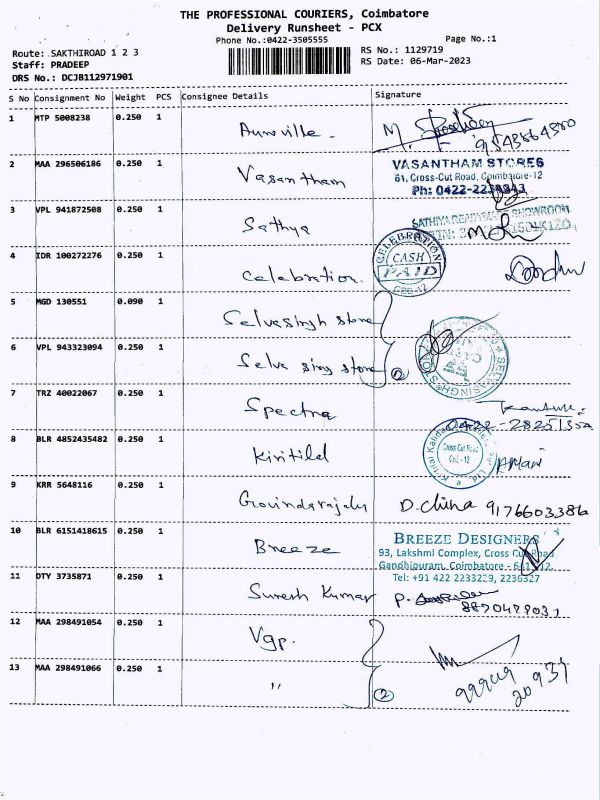 THE PROFESSIONAL COURIERS, Coimbatore
Delivery Runsheet - PCX
Phone No.:0422-3505555
Page No.:1
Route: SAKTHIROAD 1 2 3
Staff: PRADEEP
DRS No.: DCJB112971901
RS No.: 1129719
RS Date: 06-Mar-2023
S No Consignment No Weight PCS Consignee Details Signature
1 MTP 5008238 0.250 1 Auroville -
2 MAA 296506186 0.250 1 Vasantham
VASANTHAM STORES
61, Cross-Cut Road, Coimbatore-12
Ph: 0422-2238943
3 VPL 941872508 0.250 1 Sathya
SATHYA READYMADE SHOWROOM
4 IDR 100272276 0.250 1 Celebration.
CELEBRATION
CASH
PAID
CBE-12
5 MGD 130551 0.090 1 Selvasingh store
6 VPL 943323094 0.250 1 Selva sing store
2
7 TRZ 40022067 0.250 1 Spectra
8 BLR 4852435482 0.250 1 Kiritild
Cross Cut Road
Cbe - 12
9 KRR 5648116 0.250 1 Govindarajalu D. China 9176603386
10 BLR 6151418615 0.250 1 Breeze
BREEZE DESIGNERS
93, Lakshmi Complex, Cross Cut Road
Gandhipuram, Coimbatore - 641 012.
Tel: +91 422 2233229, 2236327
11 DTY 3735871 0.250 1 Suresh Kumar P.
12 MAA 298491054 0.250 1 Vgp.
13 MAA 298491066 0.250 1 "
2
99949
20937